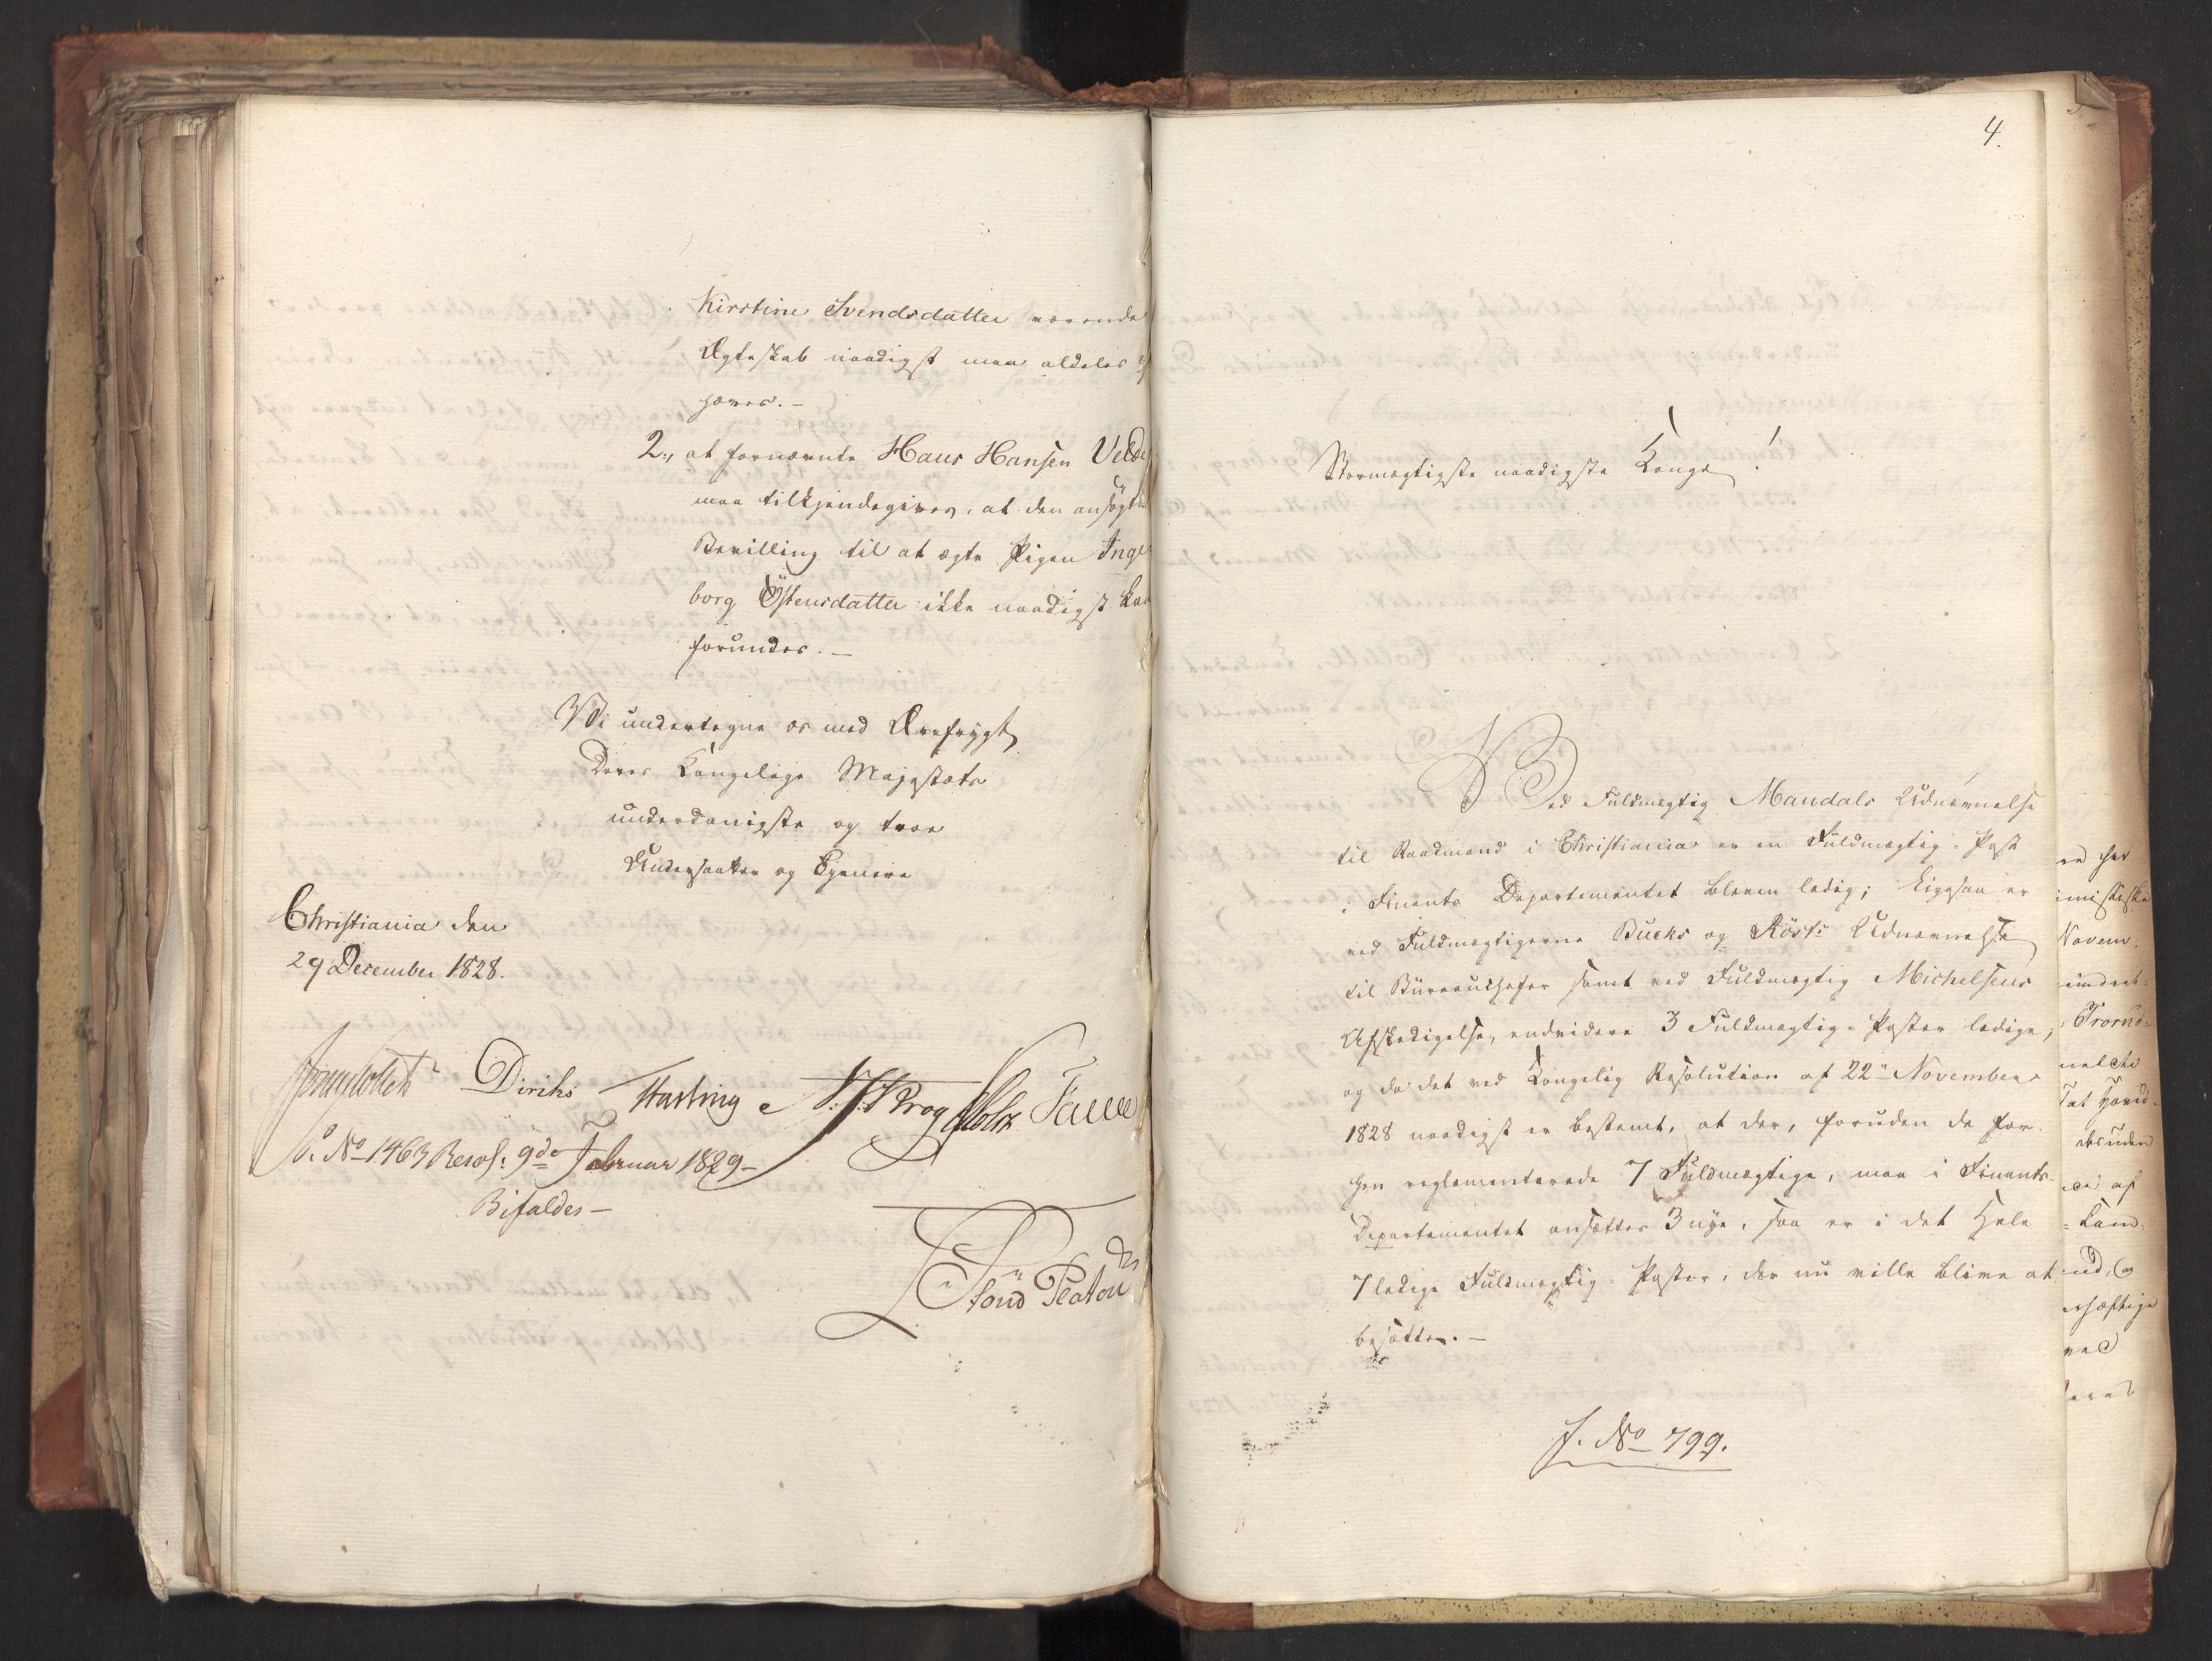 Kirstine Svendsdatter værende
Ægteskab naadigst maa aldeles op
hæves. –
2., at fornævnte Hans Hansen Velde
maa tilkjendegives, at den ansøgte
Bevilling til at ægte Pigen Inge
borg Østensdatter ikke naadigst kan
forundes. –
Vi undertegne os med Ærefrygt
Deres Kongelige Majestæts
underdanigste og troe
Undersaatter og Tjenere
Christiania den
29 December 1828.
Jonas Collett Diriks Krog Holst Fasting
S. No 1463 Resol: 9de Februar 1829 –
Bifaldes –
Platou
4.
Stormægtigste naadigste Konge!
Ved Fuldmægtig Mandals Udnævnelse
til Raadmand i Christiania er en Fuldmægtig-Post
i Finants Departementet bleven ledig; ligesaa er
ved Fuldmægtigerne Bucks og Rösts Udnævnelse
til Büreauchefer samt ved Fuldmægtig Michelsens
Afskedigelse, endvidere 3 Fuldmægtig-Poster ledige,
og da det ved Kongelig Resolution af 22de November
1828 naadigst er bestemt, at der, foruden de for-
hen reglementerede 7 Fuldmægtige, maa i Finants-
Departementet ansættes 3 nye, saa er i det Hele
7 ledige Fuldmægtig-Poster, der nu ville blive at
besætte. –
J. No 799.